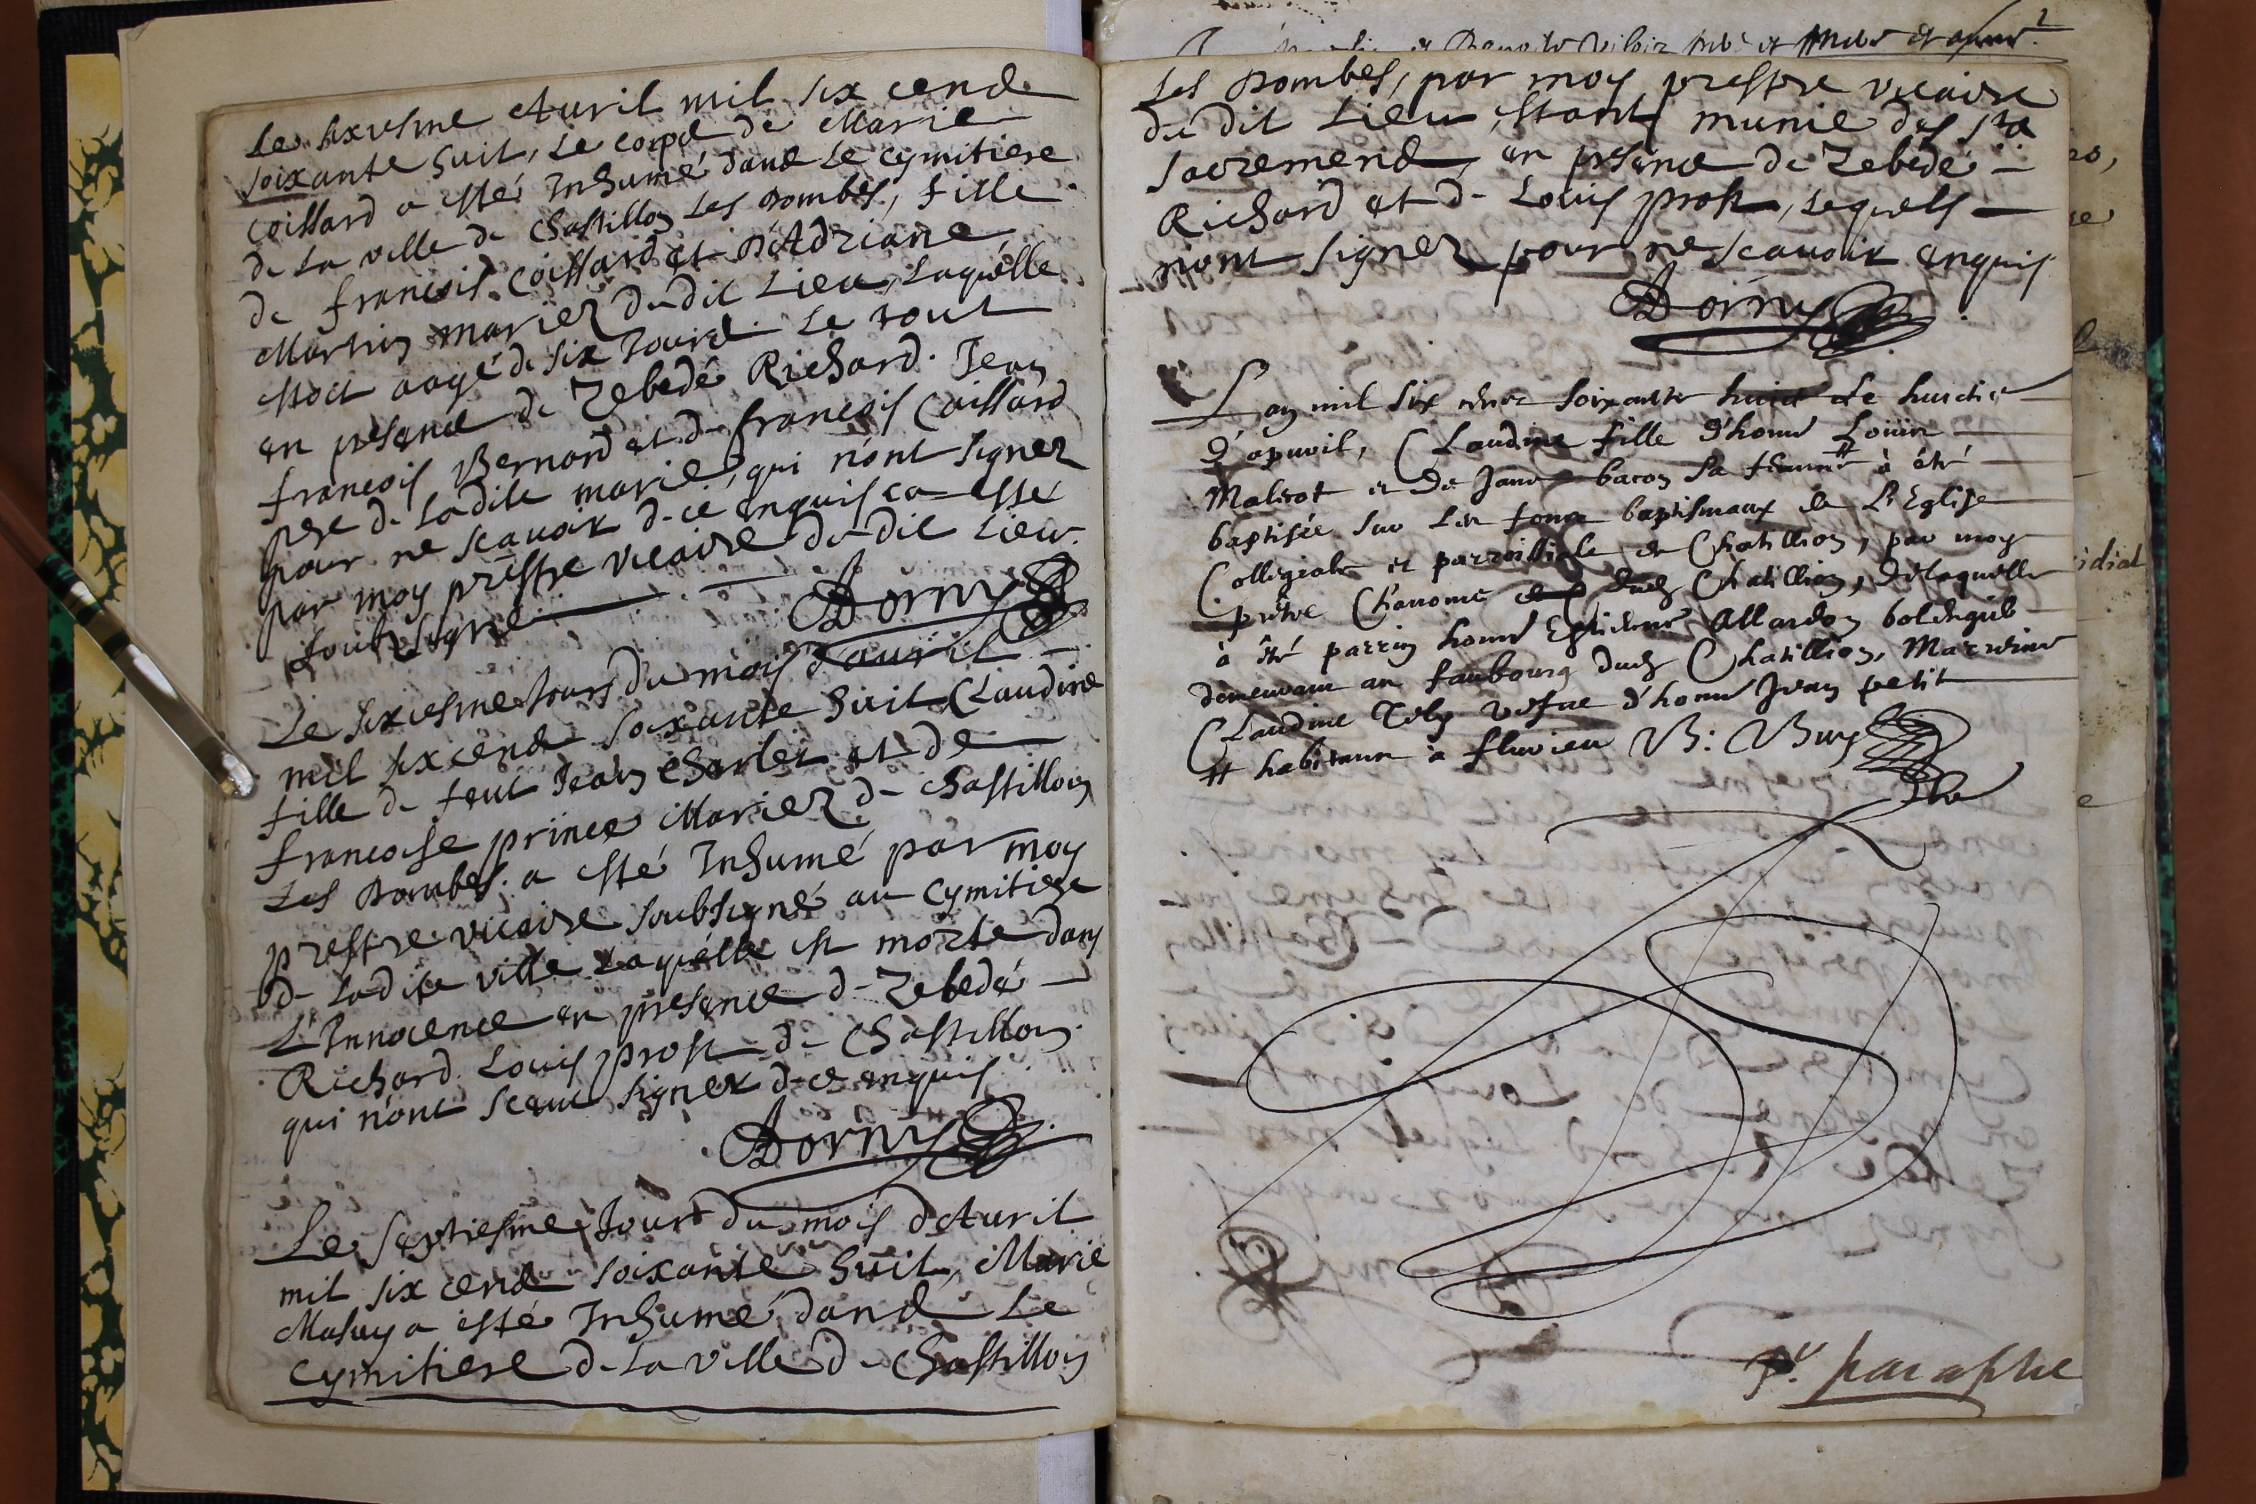 Le sixiesme Avril mil six cend
soixante huit, Le corpd de Marie
Coissard a esté Inhumé dand Le cymitiere
de La ville de Chastillon Les Dombes, fille
de francois Coissard et D'Adriane
Martin mariez dudit Lieu, Laquelle
estoit aagé de six Jourd. Le tout
en presance de Zebedé Richard. Jean
francois Bernard et d- francois Coissard
pere d- Ladite marie, qui n'ont signez
pour ne scavoir d-ce enquis ca esté
par moy prestre vicaire du dit Lieu
soubsigné
Dorny
Le sixiesme Jour du moys d'avril
mil six cend soixante huit Claudine
fille de feut Jean Charlet et de
francoise prince Mariez de Chastillon
Les Dombes a esté Inhumé par moy
prestre vicaire soubsigné au Cymitiere
d- Ladite ville Laquelle est morte dans
L'Innocence en presence d- Zebedé
Richard Louis prost d- Chastillon
qui n'ont sceut signer d-ce enquis
Dorny
Le septiesme Jour du mois d'Avril
mil six cend soixante huit, Marie
Masuy a esté Inhumé dand Le
cymitiere d- La ville d- Chastillon
2
Les Dombes, par moy prestre vicaire
du dit Lieu, estant munie des sts
sacremend, en presance de Zebedé
Richard et d- Louis prost, Lequels
n'ont signez pour ne scavoir enquis
Dorny
L'an mil six cens soixante huict le huictie
d'apuril, Claudine fille d'honne Louin
Malerot et de Jane bacon sa femme # à été
baptisée sur les fons baptismaux de L'Eglise
Collegiale et parroissiale de Chatillion, par moy
prêtre Chanoine dudt Chatillion, de laquelle
à été parrin honne Estienne Allardon
demeurant au faubourg dudt Chatillion, Marreine
Claudine vefue d'honne Jean petit
# habitans à fluvieu B: Buy
pr. paraphe